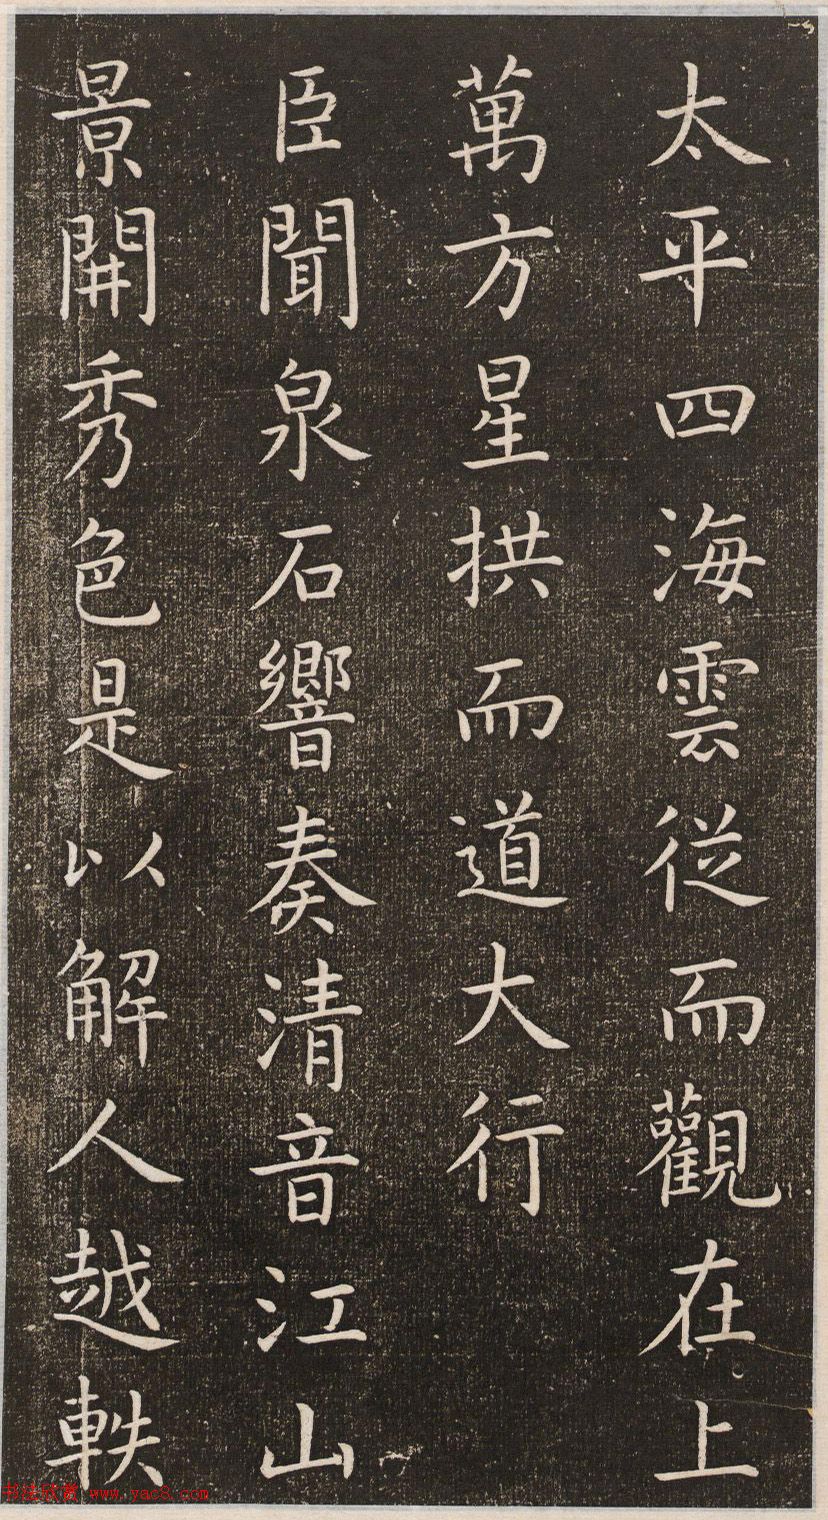 太平四海雲從而觀在上
萬方星拱而道大行
臣聞泉石響奏清音江山
景開秀色是以解人越軼
书法欣赏 www.yac8.com